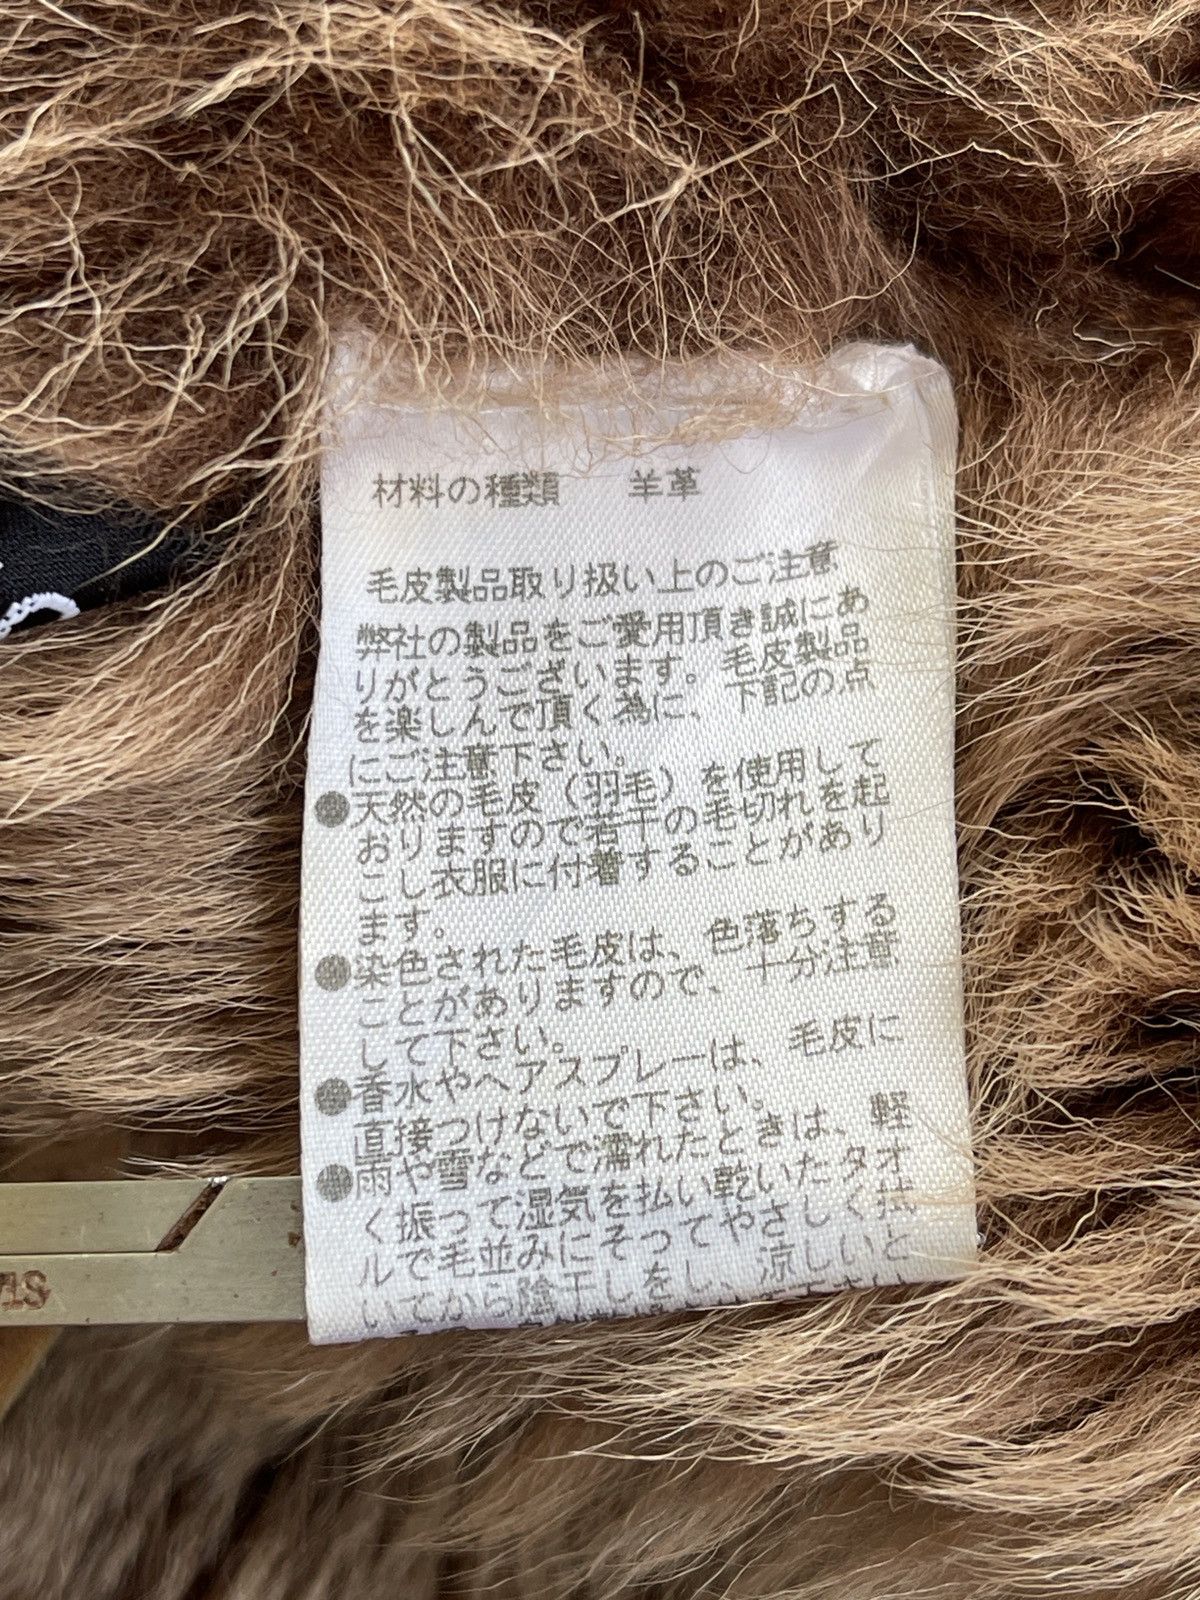 材料の種類　羊革
毛皮製品取り扱い上のご注意
弊社の製品をご愛用頂き誠にあ
りがとうございます。毛皮製品
を楽しんで頂く為に、下記の点
にご注意下さい。
●天然の毛皮（羽毛）を使用して
おりますので若干の毛切れを起
こし衣服に付着することがあり
ます。
●染色された毛皮は、色落ちする
ことがありますので、十分注意
して下さい。
●香水やヘアスプレーは、毛皮に
直接つけないで下さい。
●雨や雪などで濡れたときは、軽
く振って湿気を払い乾いたタオ
ルで毛並みにそってやさしく拭
いてから陰干しをし、涼しいと